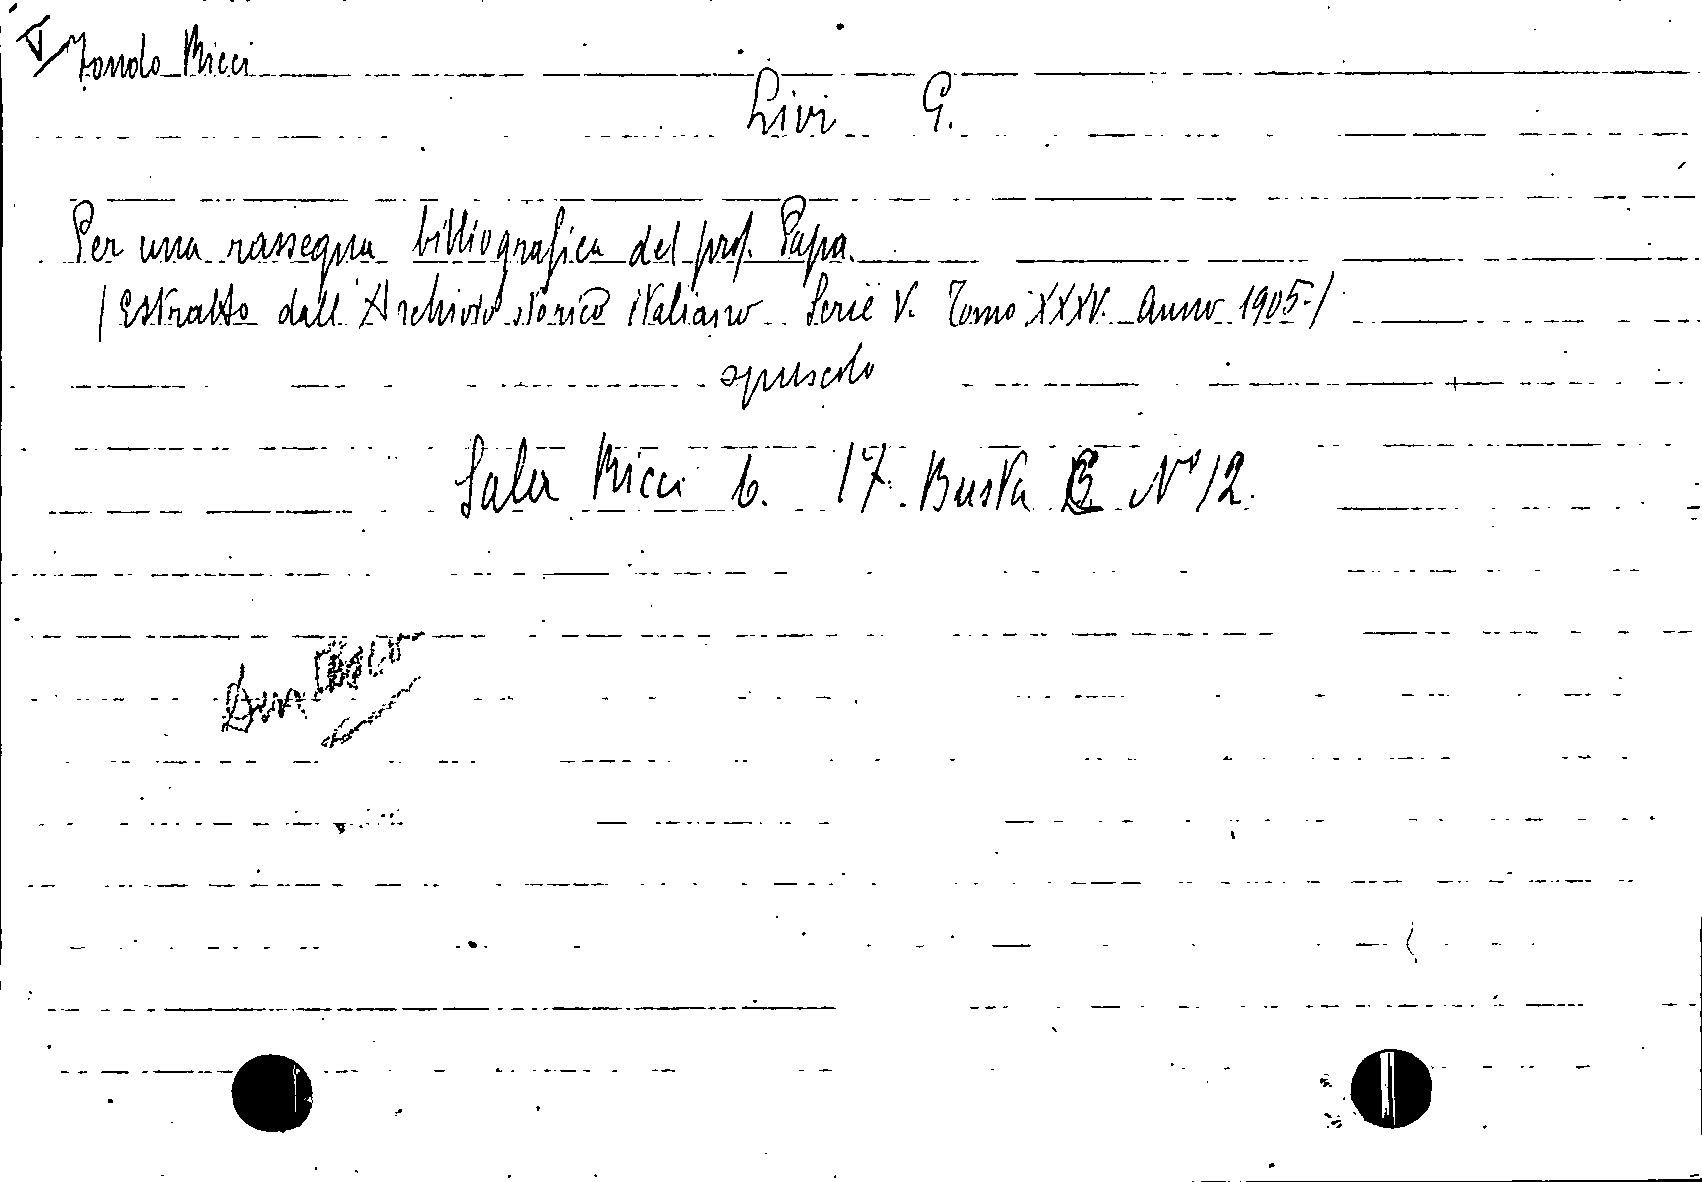 Fondo Ricci
Livi G.
Per una rassegna bibliografica del prof. Papa.
/Estratto dall'Archivio storico italiano Serie V. Tomo XXXV. Anno 1905-/
opuscolo
Sala Ricci b. 17. Busta B N° 12.